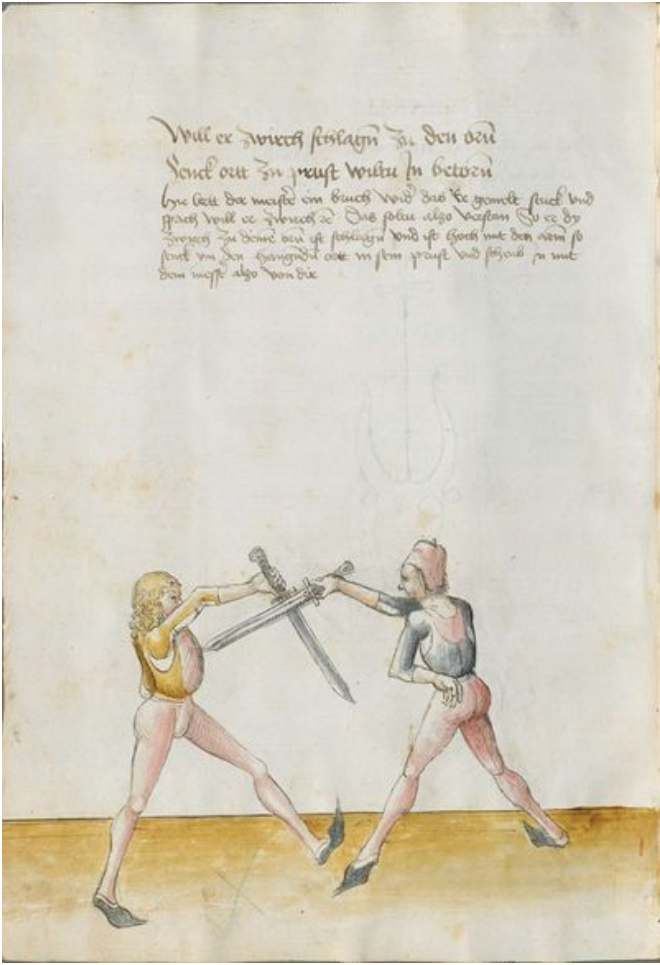 Will er zwirch schlagn zu den orn̄
Senck ortt zu prust wiltu In betorn̄
hie lett der meister ein bruch wider das Er gemelt stuck vnd
sprach will er zwirch ec̄ Das soltu also verstan So er dy
zwirch zu deinē orn̄ ist schlagn̄ vnd ist hoch mit den armn̄ so
senck im den hangendn̄ ortt in sein prust vnd scheub in mit
dem messer also von dir